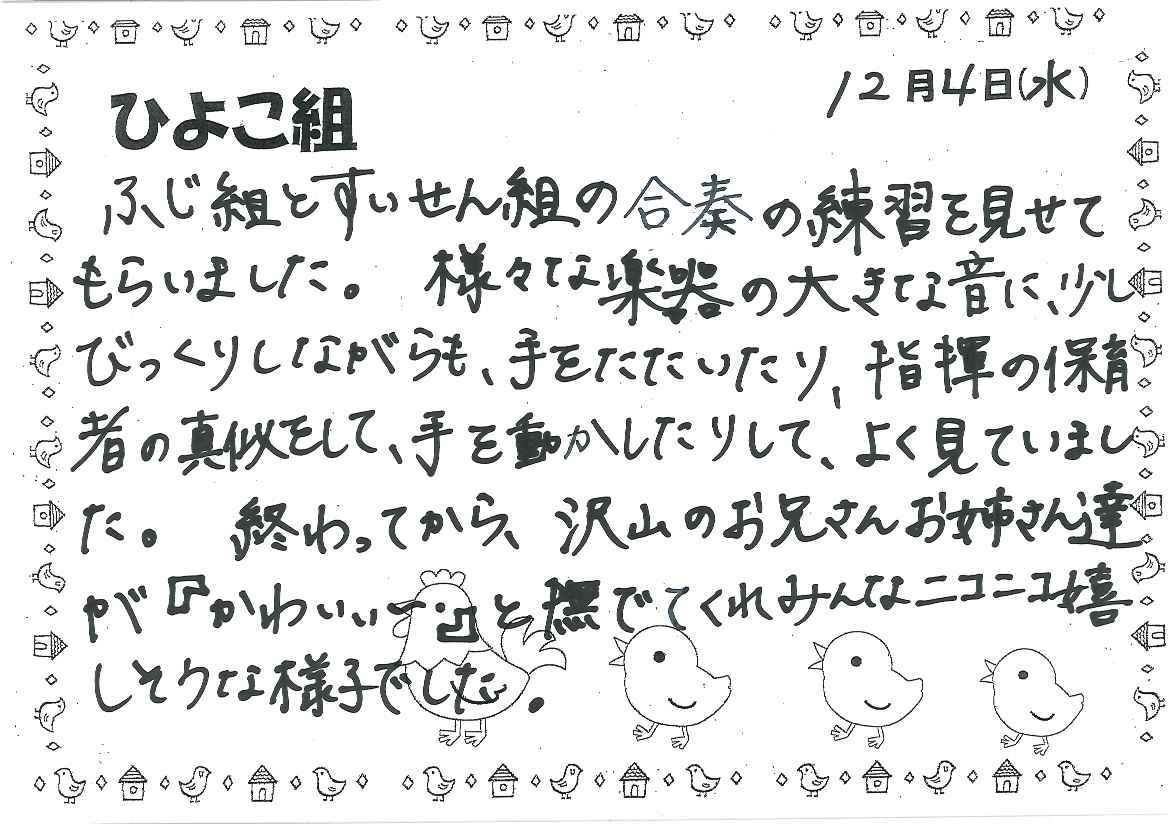 12月4日(水)
ひよこ組
ふじ組とすいせん組の合奏の練習を見せて
もらいました。 様々な楽器の大きな音に、少し
びっくりしながらも、手をたたいたり、指揮の保育
者の真似をして、手を動かしたりして、よく見ていまし
た。 終わってから、沢山のお兄さんお姉さん達
が『かわいぃ〜。』と撫でてくれみんなニコニコ嬉
しそうな様子でした。